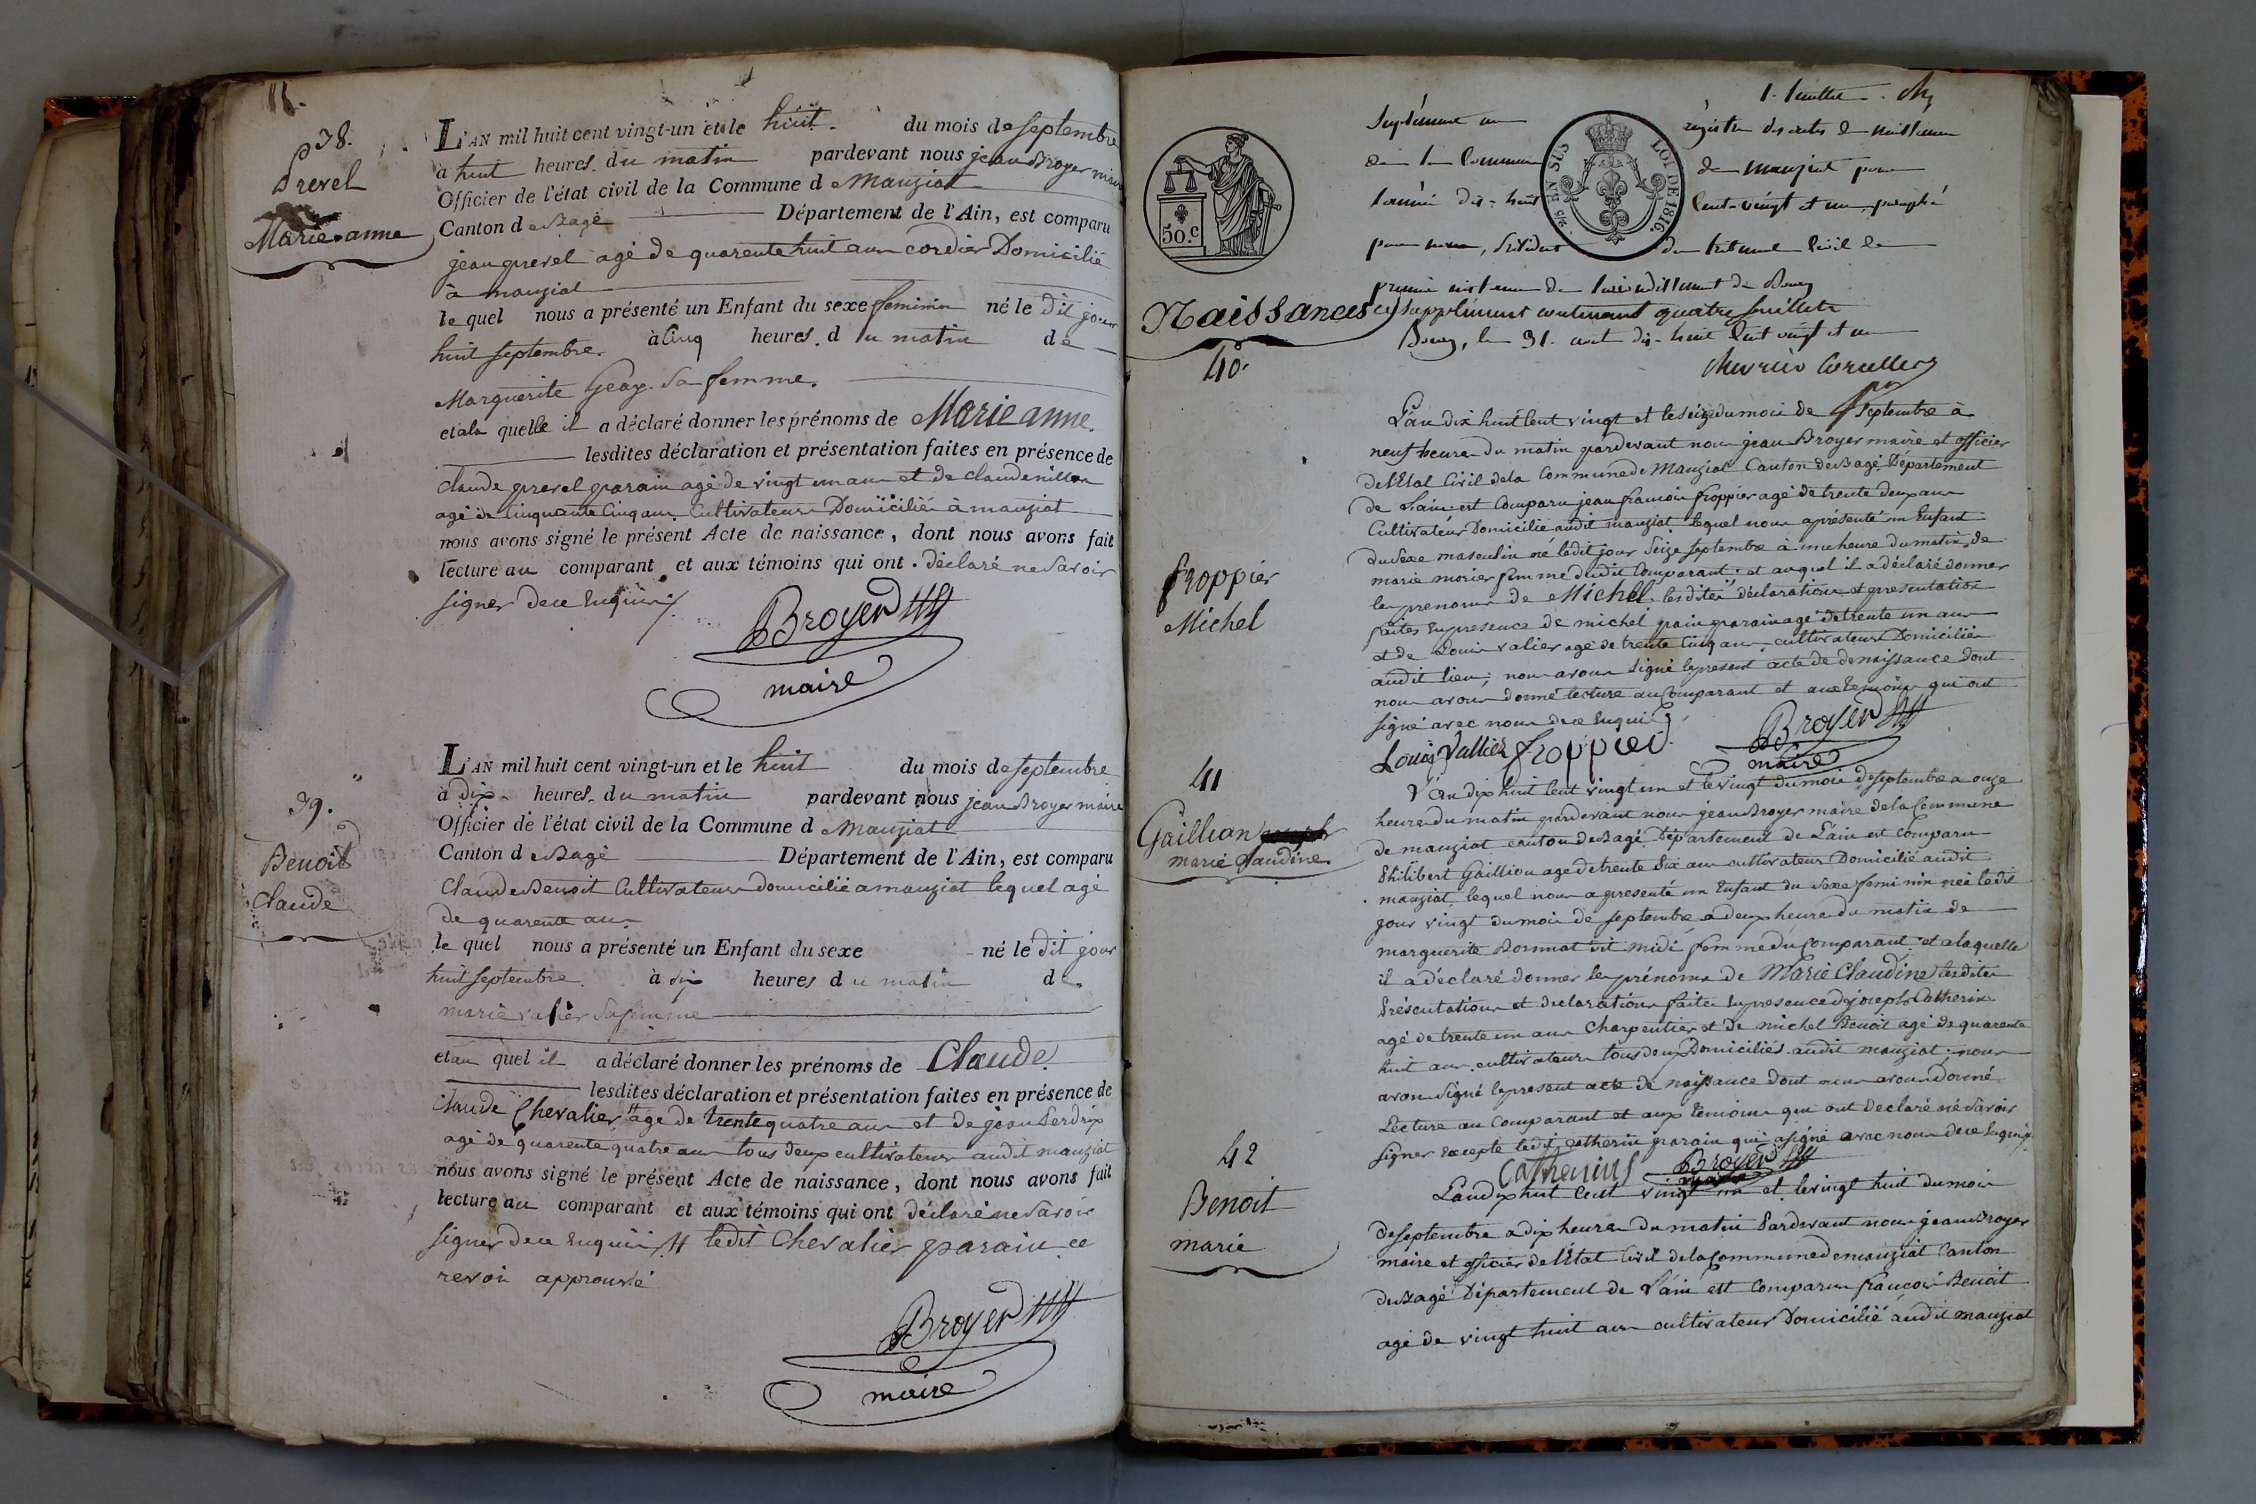 38.
Prevel
Marie anne
L'AN mil huit cent vingt-un et le huit du mois de septembre
à huit heures du matin pardevant nous jean Broyer maire
Officier de l'état civil de la Commune de Manziat
Canton de Bagé Département de l'Ain, est comparu
jean prevel agé de quarente huit ans cordier Domicilié
à manziat
le quel nous a présenté un Enfant du sexe feminin né le dit jour
huit septembre à Cinq heures du matin de
Marguerite Geay sa femme.
et à la quelle il a déclaré donner les prénoms de Marie anne.
lesdites déclaration et présentation faites en présence de
Claude prevel parain agé de vingt un ans et de claude
agé de Cinquante Cinq ans Cultivateurs Domicilié à manziat
nous avons signé le présent Acte de naissance, dont nous avons fait
lecture au comparant et aux témoins qui ont déclaré ne savoir
signer de ce Enquis
Broyer
maire
39.
Benoit
Claude
L'AN mil huit cent vingt-un et le huit du mois de septembre
à Dix heures du matin pardevant nous jean Broyer maire
Officier de l'état civil de la Commune de Manziat
Canton de Bagé Département de l'Ain, est comparu
Claude Benoit Cultivateur domicilié a manziat lequel agé
de quarente ans
le quel nous a présenté un Enfant du sexe né le dit jour
huit septembre à six heures du matin de
marie valier sa femme
et au quel il a déclaré donner les prénoms de Claude.
lesdites déclaration et présentation faites en présence de
Claude Chevalier agé de trente quatre ans et de jean Perdrix
agé de quarente quatre ans tous deux cultivateurs audit manziat
nous avons signé le présent Acte de naissance, dont nous avons fait
lecture au comparant et aux témoins qui ont déclaré ne savoir
signer de ce Enquis # ledit Chevalier parain ce
renvoi approuvé
Broyer
maire
1. feuillet
Suplément au régistre des actes de naissance
de la Commune de manziat pour
l'année dix-huit Cent-vingt et un, paraphé
par nous, Président du tribunal Civil de
première instance de l'arrondissement de Bourg
50.c
EN SUS
LOI DE 1816.
Naissances
ce supplément contenant quatre feuillets
Bourg, le 31. août dix-huit Cent vingt et un
40.
froppier
Michel
L'an dix huit Cent vingt et le seize du mois de septembre à
neuf heures du matin pardevant nous jean Broyer maire et officier
de l'Etat Civil de la Commune de Manziat Canton de Bagé Département
de l'ain est Comparu jean francois froppier agé de trente deux ans
Cultivateur Domicilié audit manziat lequel nous a présenté un Enfant
du sexe masculin né ledit jour seize septembre à une heure du matin de
marie morier femme dudit Comparant; et auquel il a déclaré donner
les prenoms de Michel lesdites déclaration et presentation
faites En presence de michel pain parain agé de trente un ans
et de Louis valier agé de trente Cinq ans cultivateurs Domiciliés
audit lieu; nous avons signé le present acte de de naissance dont
nous avons donné lecture au Comparant et aux temoins qui ont
signé avec nous de ce Enquis
Louis Vallier froppier Broyer
maire
41
Gaillian
marie Claudine
L'an dix huit Cent vingt un et le vingt du mois de septembre a onze
heures du matin pardevant nous jean Broyer maire de la Commune
de manziat canton de Bagé Département de L'ain est Comparu
Philibert Gaillion agé de trente six ans cultivateur Domicilié audit
manziat, lequel nous a presenté un Enfant du sexe feminin née le dit
jour vingt du mois de septembre a deux heures du matin de
marguerite Bonnat dit midi femme du Comparant. et a laquelle
il a déclaré donner les prénoms de Marie Claudine lesdites
Présentation et declaration faites En presence de joseph Catherin
agé de trente un ans Charpentier et de michel Benoit agé de quarente
huit ans cultivateur tous deux Domiciliés audit manziat. nous
avons signé le present acte de naissance dont nous avons Donné
Lecture au Comparant et aux temoins qui ont declaré ne savoir
signer Excepté ledit Catherin parain qui a signé avec nous de ce Enquis
Catherin Broyer
maire
42
Benoit
marie
L'an dix huit Cent vingt un et le vingt huit du mois
de septembre a dix heures du matin Pardevant nous jean Broyer
maire et officier de l'Etat Civil de la Commune de manziat Canton
de Bagé Département de L'ain est Comparu francois Benoit
agé de vingt huit ans cultivateur Domicilié audit manziat